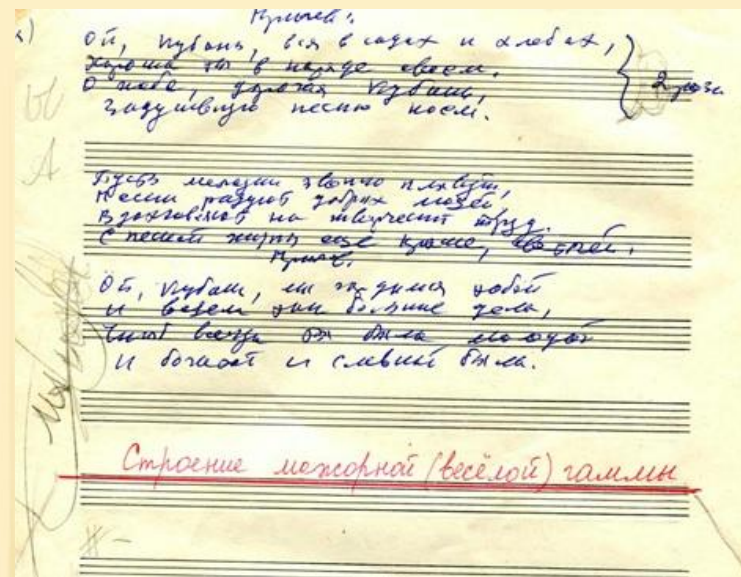 Припев:
Ой, Кубань, вся в садах и хлебах,
Хороша ты в наряде своем.
О тебе, дорогая Кубань,
Задушевную песню поем.
2 раза
Пусть мелодии звонко плывут,
Песни радуют добрых людей,
Вдохновляют на творческий труд.
С песней жизнь еще краше,
Припев.
Ой, Кубань, мы гордимся тобой
И ведем большие дела,
Чтоб всегда ты была молодой
И богатой и славной была.
Строение мажорной (весёлой) гаммы